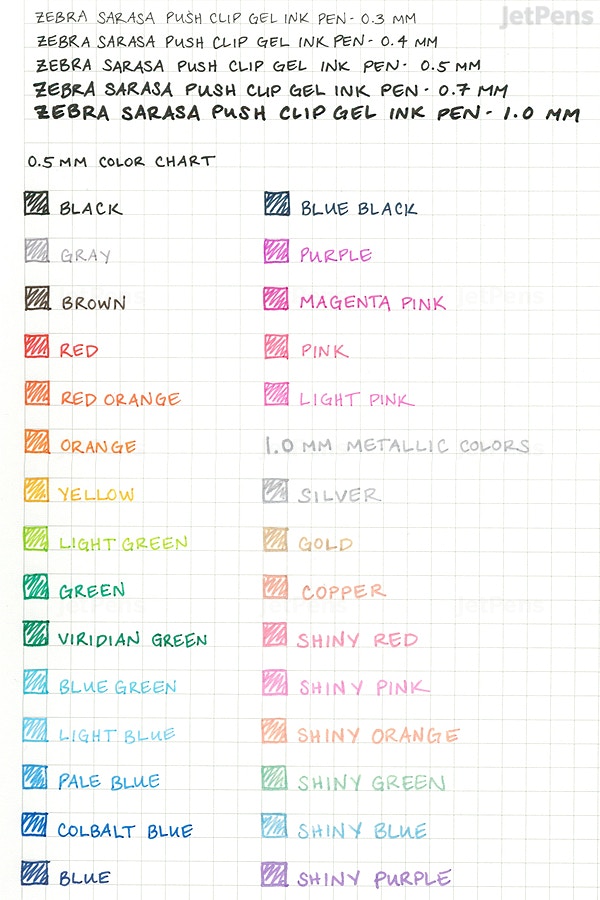 JetPens
ZEBRA SARASA PUSH CLIP GEL INK PEN - 0.3 MM
ZEBRA SARASA PUSH CLIP GEL INK PEN - 0.4 MM
ZEBRA SARASA PUSH CLIP GEL INK PEN - 0.5 MM
ZEBRA SARASA PUSH CLIP GEL INK PEN - 0.7 MM
ZEBRA SARASA PUSH CLIP GEL INK PEN - 1.0 MM
0.5 MM COLOR CHART
BLACK
GRAY
BROWN
RED
RED ORANGE
ORANGE
YELLOW
LIGHT GREEN
GREEN
VIRIDIAN GREEN
BLUE GREEN
LIGHT BLUE
PALE BLUE
COLBALT BLUE
BLUE
BLUE BLACK
PURPLE
MAGENTA PINK
PINK
LIGHT PINK
1.0 MM METALLIC COLORS
SILVER
GOLD
COPPER
SHINY RED
SHINY PINK
SHINY ORANGE
SHINY GREEN
SHINY BLUE
SHINY PURPLE
JetPens
JetPens
JetPens
JetPens